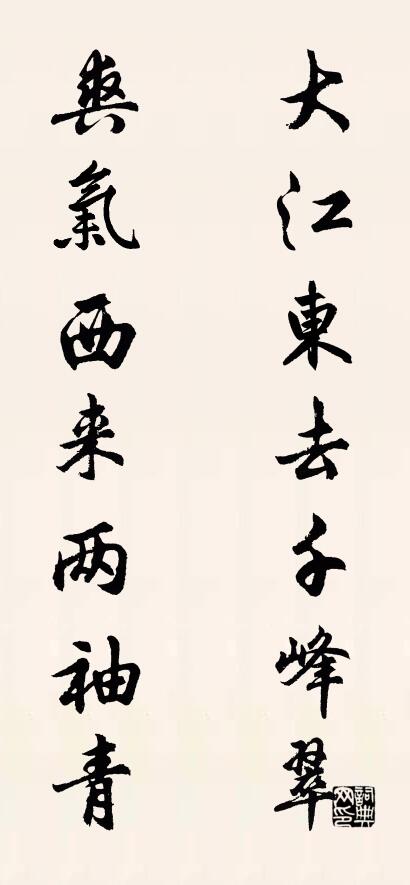 大江東去千峰翠
爽氣西来两袖青
詞典网印